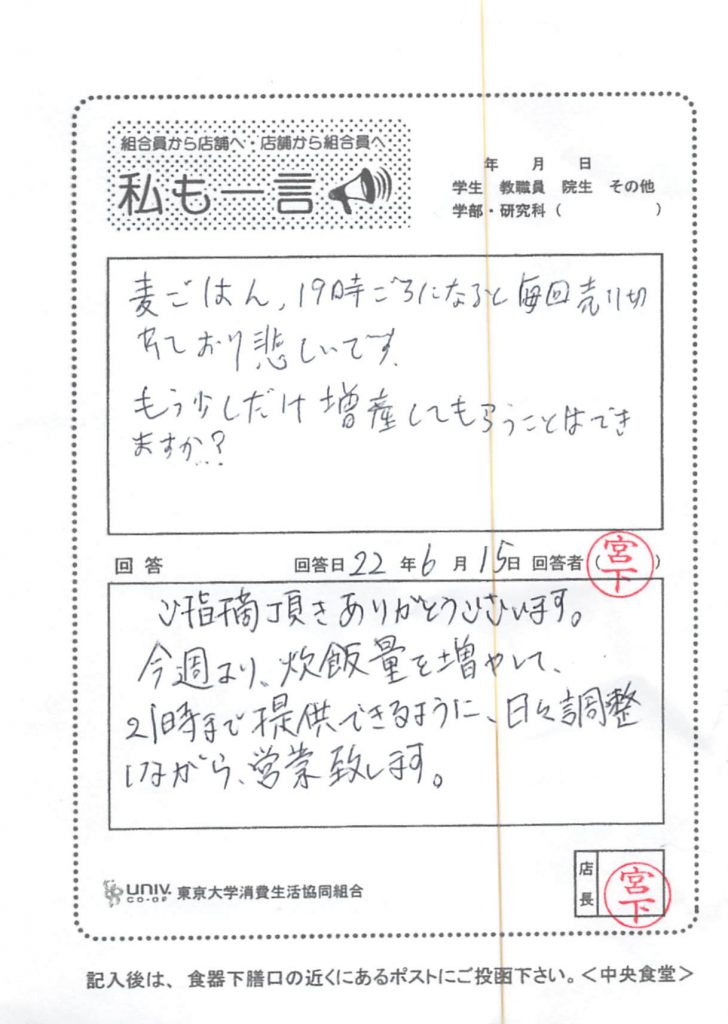 組合員から店舗へ・店舗から組合員へ
私も一言
年 月 日
学生 教職員 院生 その他
学部・研究科( )
麦ごはん,19時ごろになると毎回売り切
れており悲しいです
もう少しだけ増産してもらうことはでき
ますか?
回答 回答日22年6月15日 回答者(宮下)
ご指摘頂きありがとうございます。
今週より、炊飯量を増やして、
21時まで提供できるように、日々調整
しながら、営業致します。
店長 宮下
UNIV. CO-OP 東京大学消費生活協同組合
記入後は、食器下膳口の近くにあるポストにご投函下さい。<中央食堂>